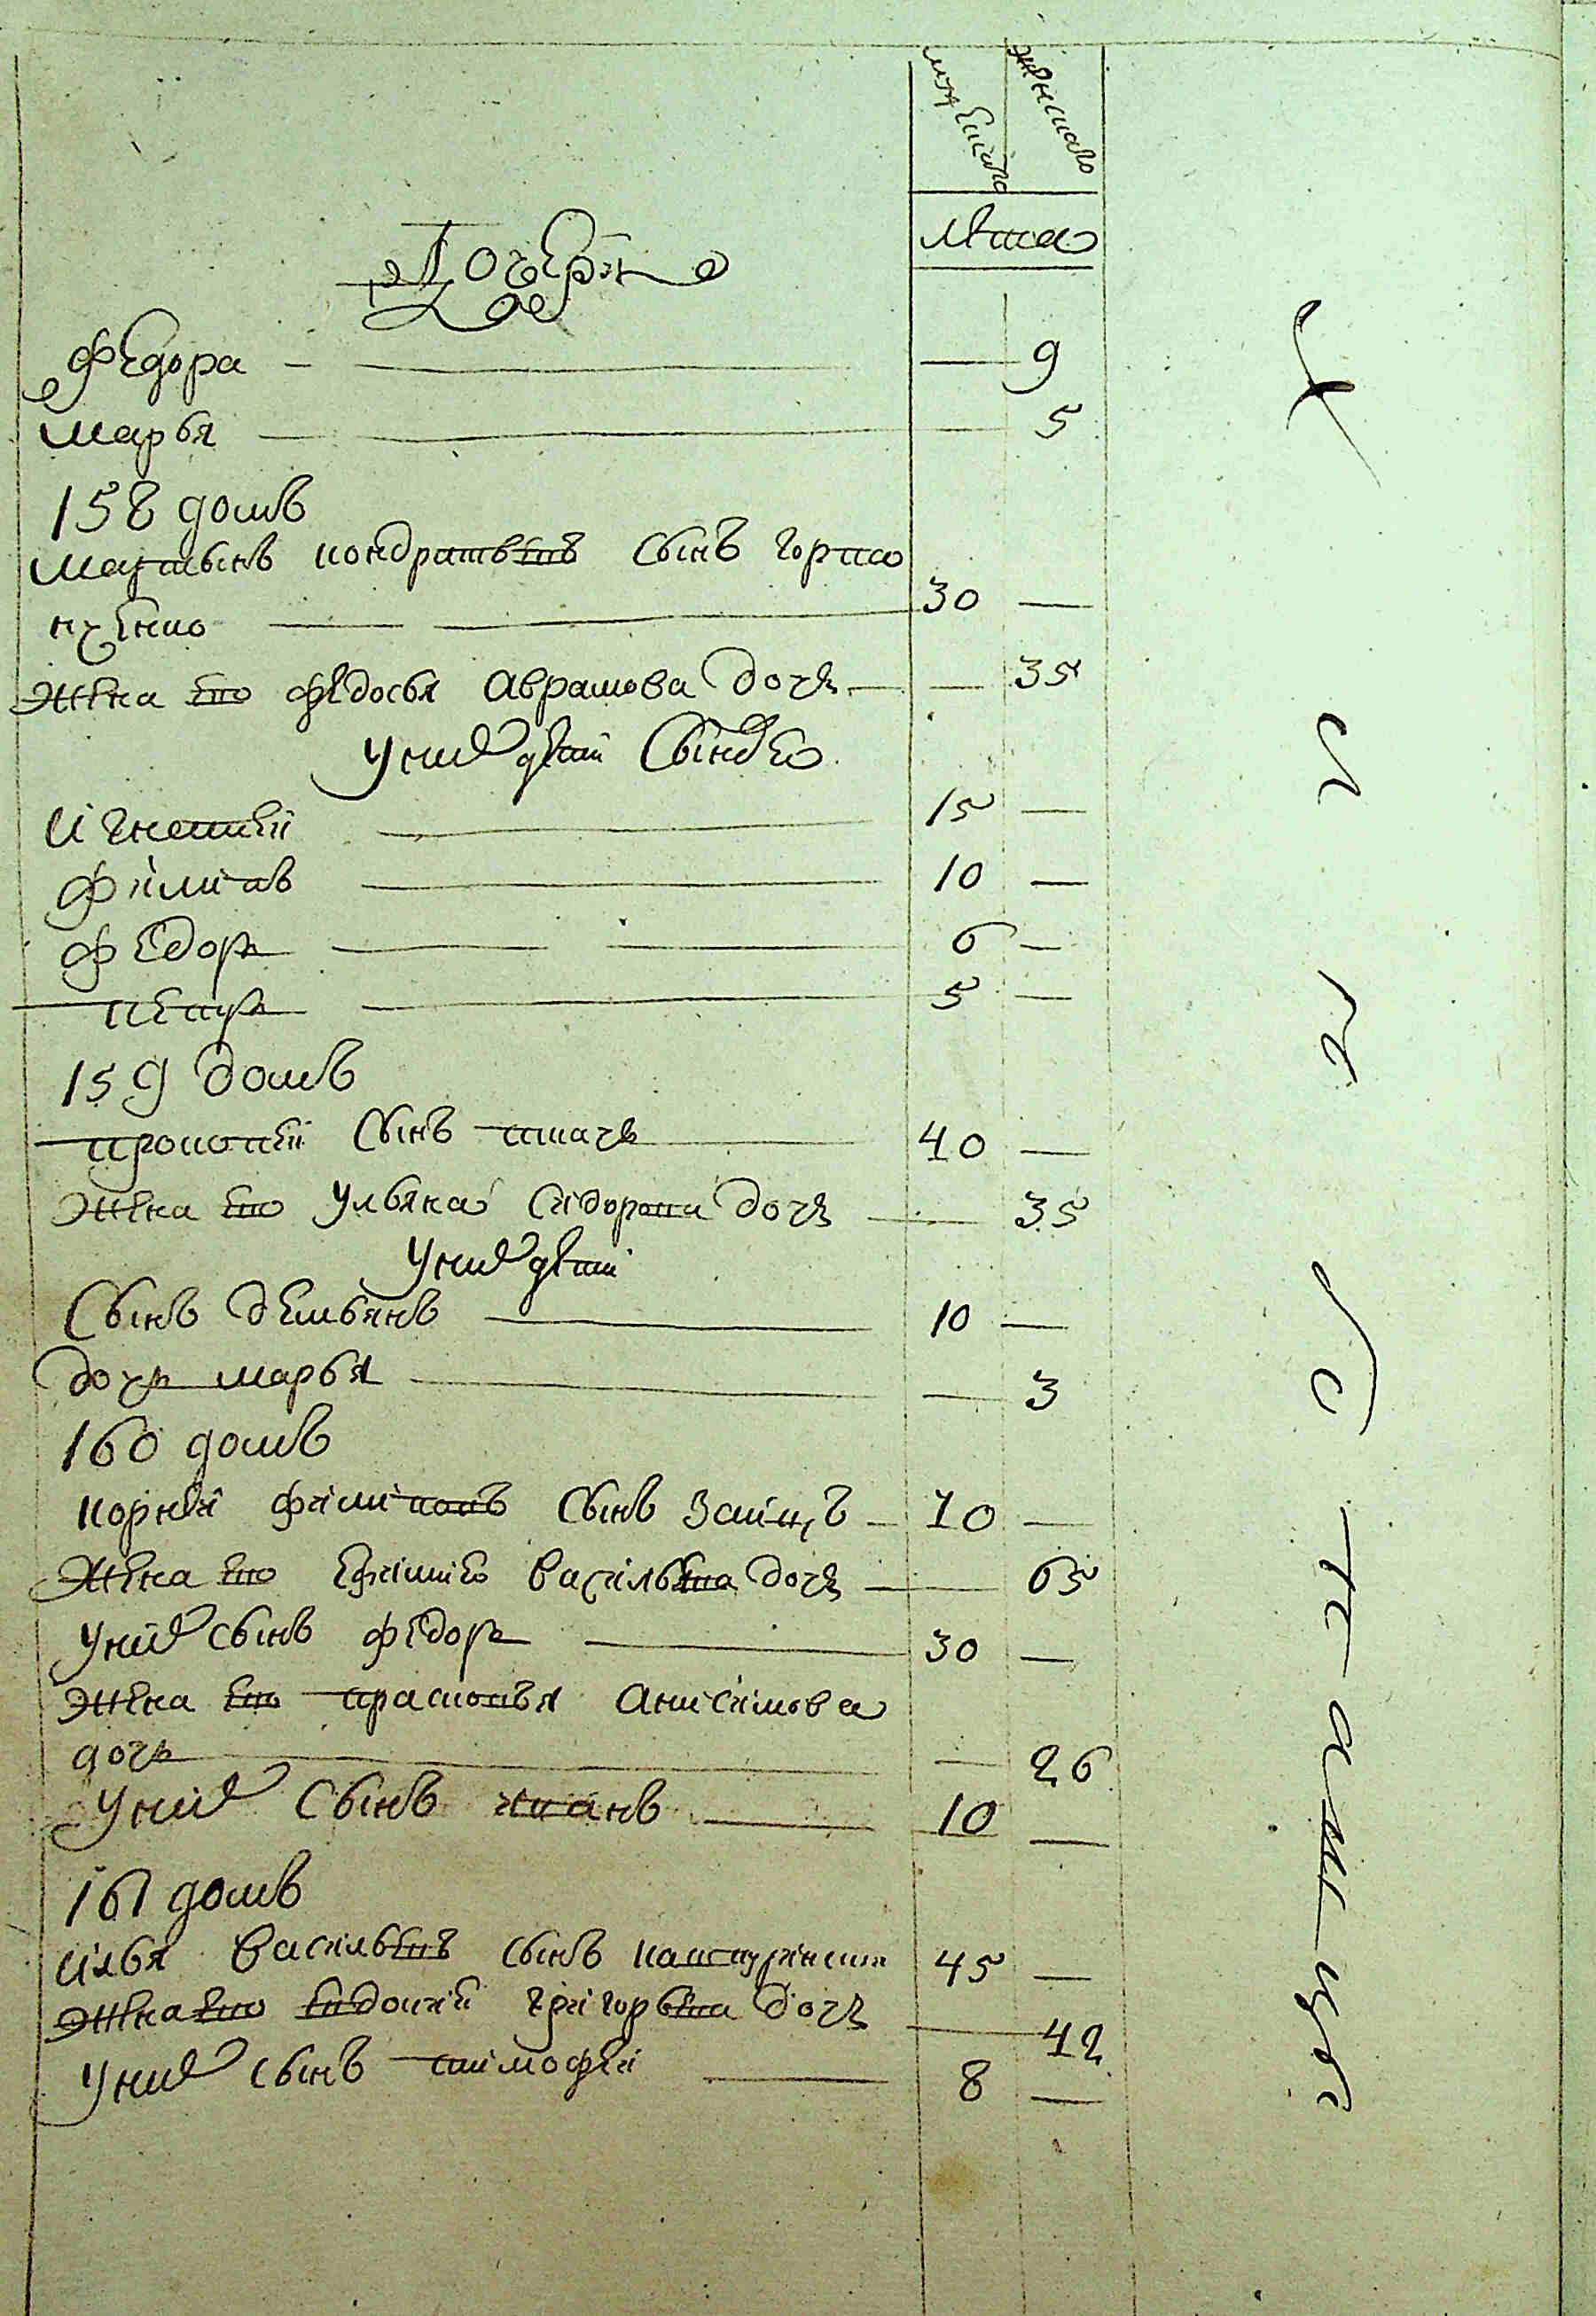 мужеска женска
лѣта
Дочери
Федора — 9
Марья — 5
158 домъ
Мартынъ Кондратьевъ сынъ Горпи
нченко — 30 —
Жена его Федосья Аврамова дочь — 35
У них дѣти сынове
Игнатей 15 —
Филипъ 10 —
Федоръ 6 —
Петръ 5 —
159 домъ
Прокопей сынъ Ткачь 40 —
Жена его Ульяна Сидорова дочь — 35
У них дѣти
Сынъ Демьянъ 10 —
Дочь Марья — 3
160 домъ
Корнѣй Филиповъ сынъ Заицъ — 70 —
Жена его Ефимия Васильева дочь — 65
У них сынъ Федоръ 30 —
Жена его Прасковья Анисимова
дочь — 26
У них сынъ Иванъ 10 —
161 домъ
Илья Васильевъ сынъ 45 —
Жена его Евдокия Григорьева дочь — 42
У них сынъ Тимофей 8 —